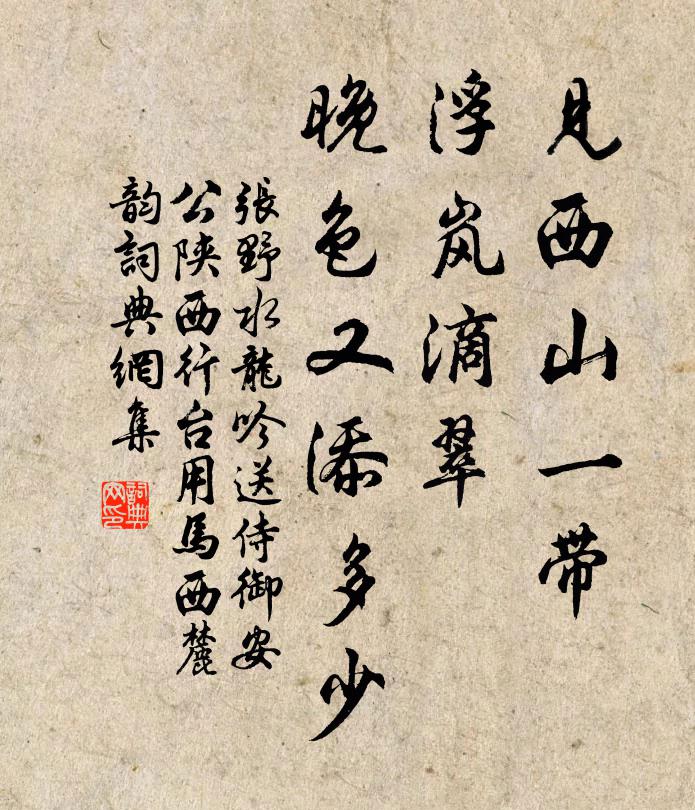 見西山一带
浮岚滴翠
晚色又添多少
張野水龍吟送侍御安
公陕西行台用馬西麓
韵詞典網集
詞典
网印